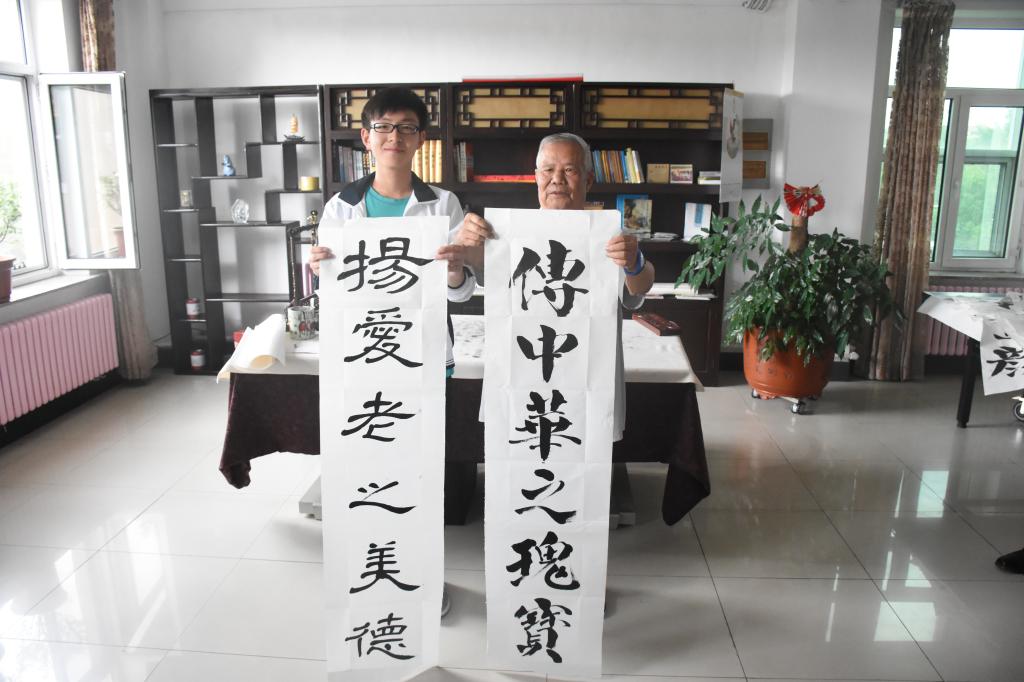 傳中華之瑰寶
揚愛老之美德